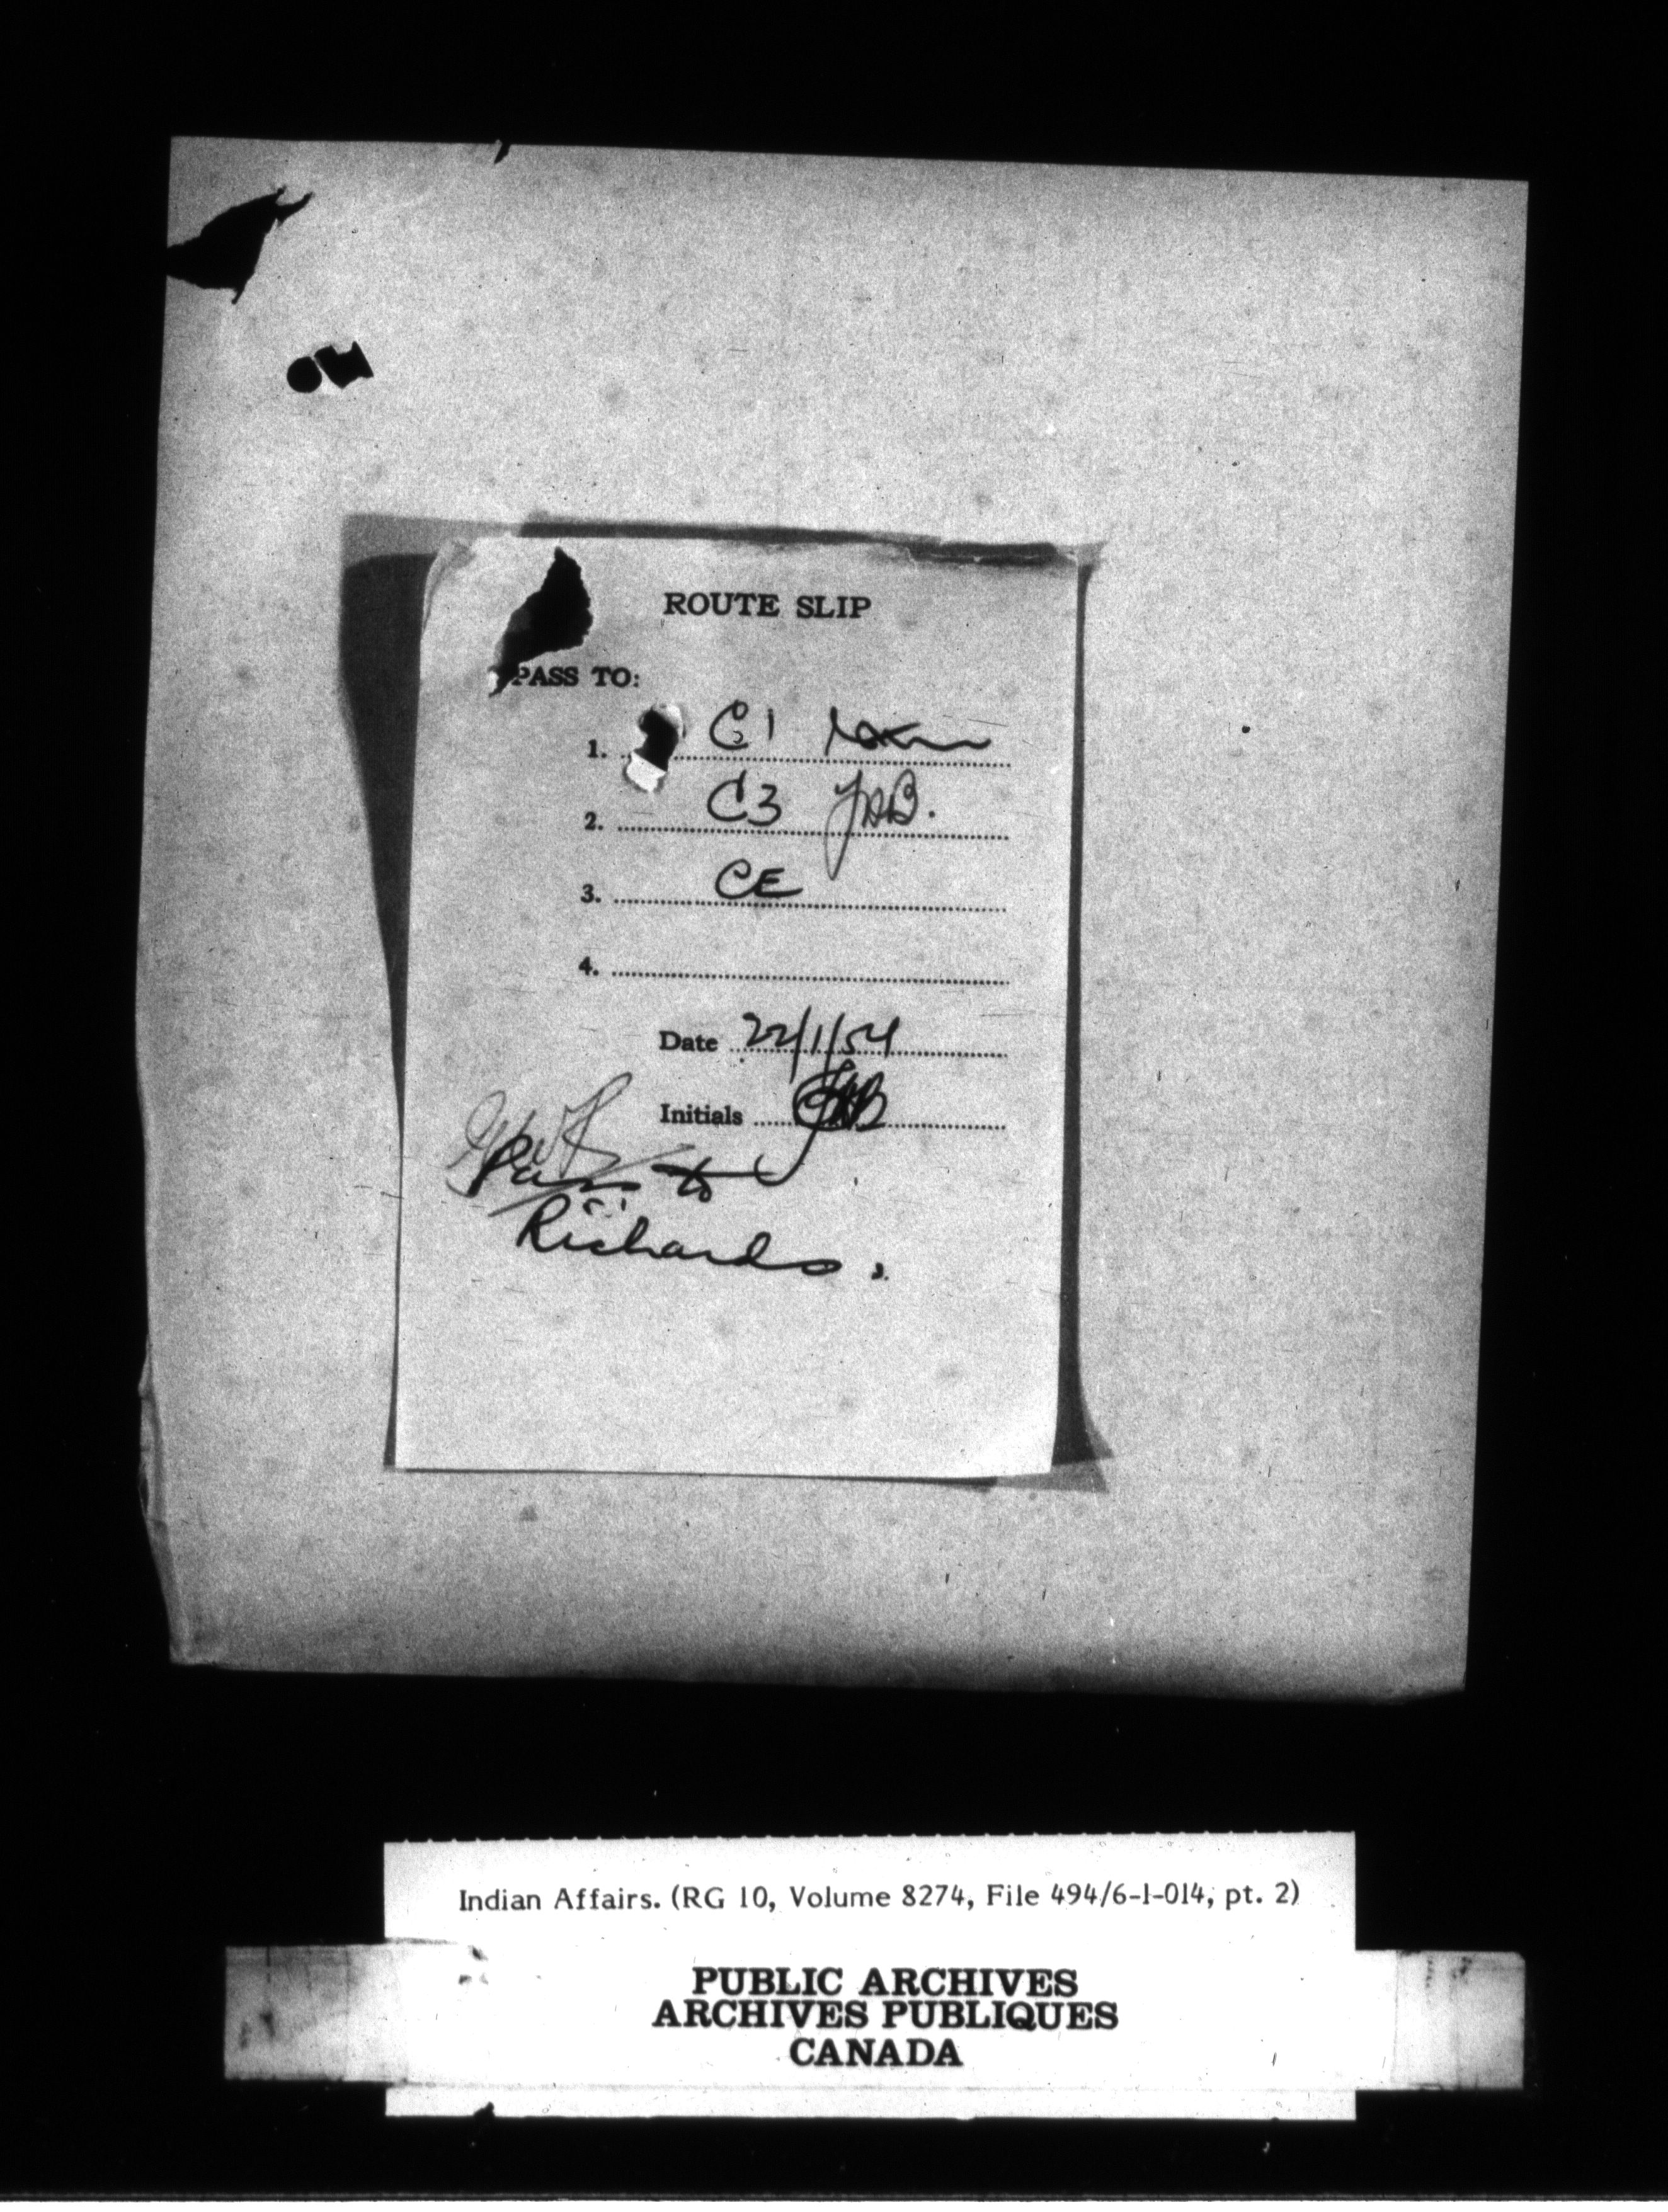 ROUTE SLIP
PASS TO:
1. C1
2. C3
3. CE
4.
Date 22/1/54
Initials
Pass to
Richards.
Indian Affairs. (RG 10, Volume 8274, File 494/6-1-014, pt. 2)
PUBLIC ARCHIVES
ARCHIVES PUBLIQUES
CANADA